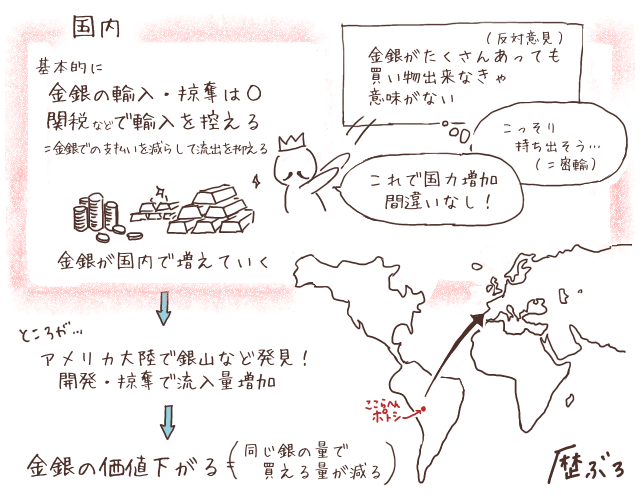 国内
基本的に
金銀の輸入・掠奪は〇
関税などで輸入を控える
=金銀での支払いを減らして流出を抑える
金銀が国内で増えていく
(反対意見)
金銀がたくさんあっても
買い物出来なきゃ
意味がない
こっそり
持ち出そう…
(=密輸)
これで国力増加
間違いなし!
ところが…
アメリカ大陸で銀山など発見!
開発・掠奪で流入量増加
金銀の価値下がる=(同じ銀の量で
買える量が減る)
ここらへん
ポトシ
歴ぶろ